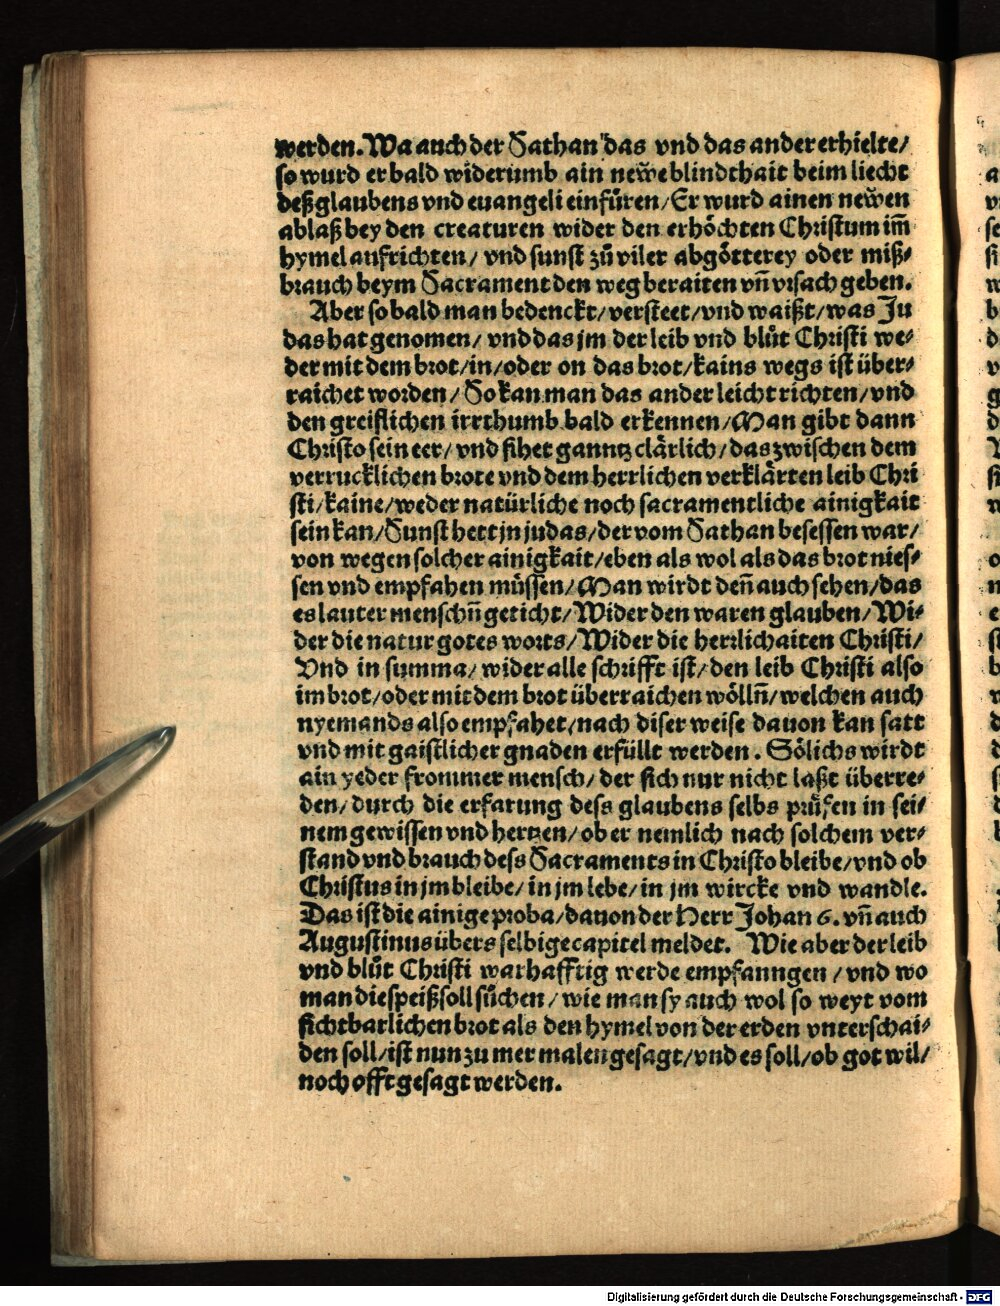 werden. Wa auch der Sathan das vnd das ander erhielte/
so wurd er bald widerumb ain neẅe blindthait beim liecht
deß glaubens vnd euangeli einfüren/ Er wurd ainen neẅen
ablaß bey den creaturen wider den erhöchten Christum im̄
hymel aufrichten/ vnd sunst zů viler abgötterey oder miß⸗
brauch beym Sacrament den weg beraiten vn̄ vrsach geben.
Aber so bald man bedenckt/ versteet/ vnd waißt/ was Ju
das hat genomen/ vnd das jm der leib vnd blůt Christi we⸗
der mit dem brot/ in/ oder on das brot/ kains wegs ist über⸗
raichet worden/ So kan man das ander leicht richten/ vnd
den greiflichen irrthumb bald erkennen/ Man gibt dann
Christo sein eer/ vnd sihet ganntz clärlich/ das zwischen dem
verrucklichen brote vnd dem herrlichen verklärten leib Chri
sti/ kaine/ weder natürliche noch sacramentliche ainigkait
sein kan/ Sunst hett jn judas/ der vom Sathan besessen war/
von wegen solcher ainigkait/ eben als wol als das brot nies⸗
sen vnd empfahen müssen/ Man wirdt den̄ auch sehen/ das
es lauter menschn̄ geticht/ Wider den waren glauben/ Wi⸗
der die natur gotes worts/ Wider die herrlichaiten Christi/
Vnd in summa/ wider alle schrifft ist/ den leib Christi also
im brot/ oder mit dem brot überraichen wölln̄/ welchen auch
nyemands also empfahet/ nach diser weise dauon kan satt
vnd mit gaistlicher gnaden erfüllt werden. Sölichs wirdt
ain yeder frommer mensch/ der sich nur nicht laßt überre⸗
den/ durch die erfarung dess glaubens selbs prüfen in sei⸗
nem gewissen vnd hertzen/ ob er nemlich nach solchem ver⸗
stand vnd brauch dess Sacraments in Christo bleibe/ vnd ob
Christus in jm bleibe/ in jm lebe/ in jm wircke vnd wandle.
Das ist die ainige proba/ dauon der Herr Johan 6. vn̄ auch
Augustinus übers selbige capitel meldet. Wie aber der leib
vnd blůt Christi warhafftig werde empfanngen/ vnd wo
man die speiß soll sůchen/ wie man sy auch wol so weyt vom
sichtbarlichen brot als den hymel von der erden vnterschai⸗
den soll/ ist nun zu mer malen gesagt/ vnd es soll/ ob got wil/
noch offt gesagt werden.
Digitalisierung gefördert durch die Deutsche Forschungsgemeinschaft - DFG